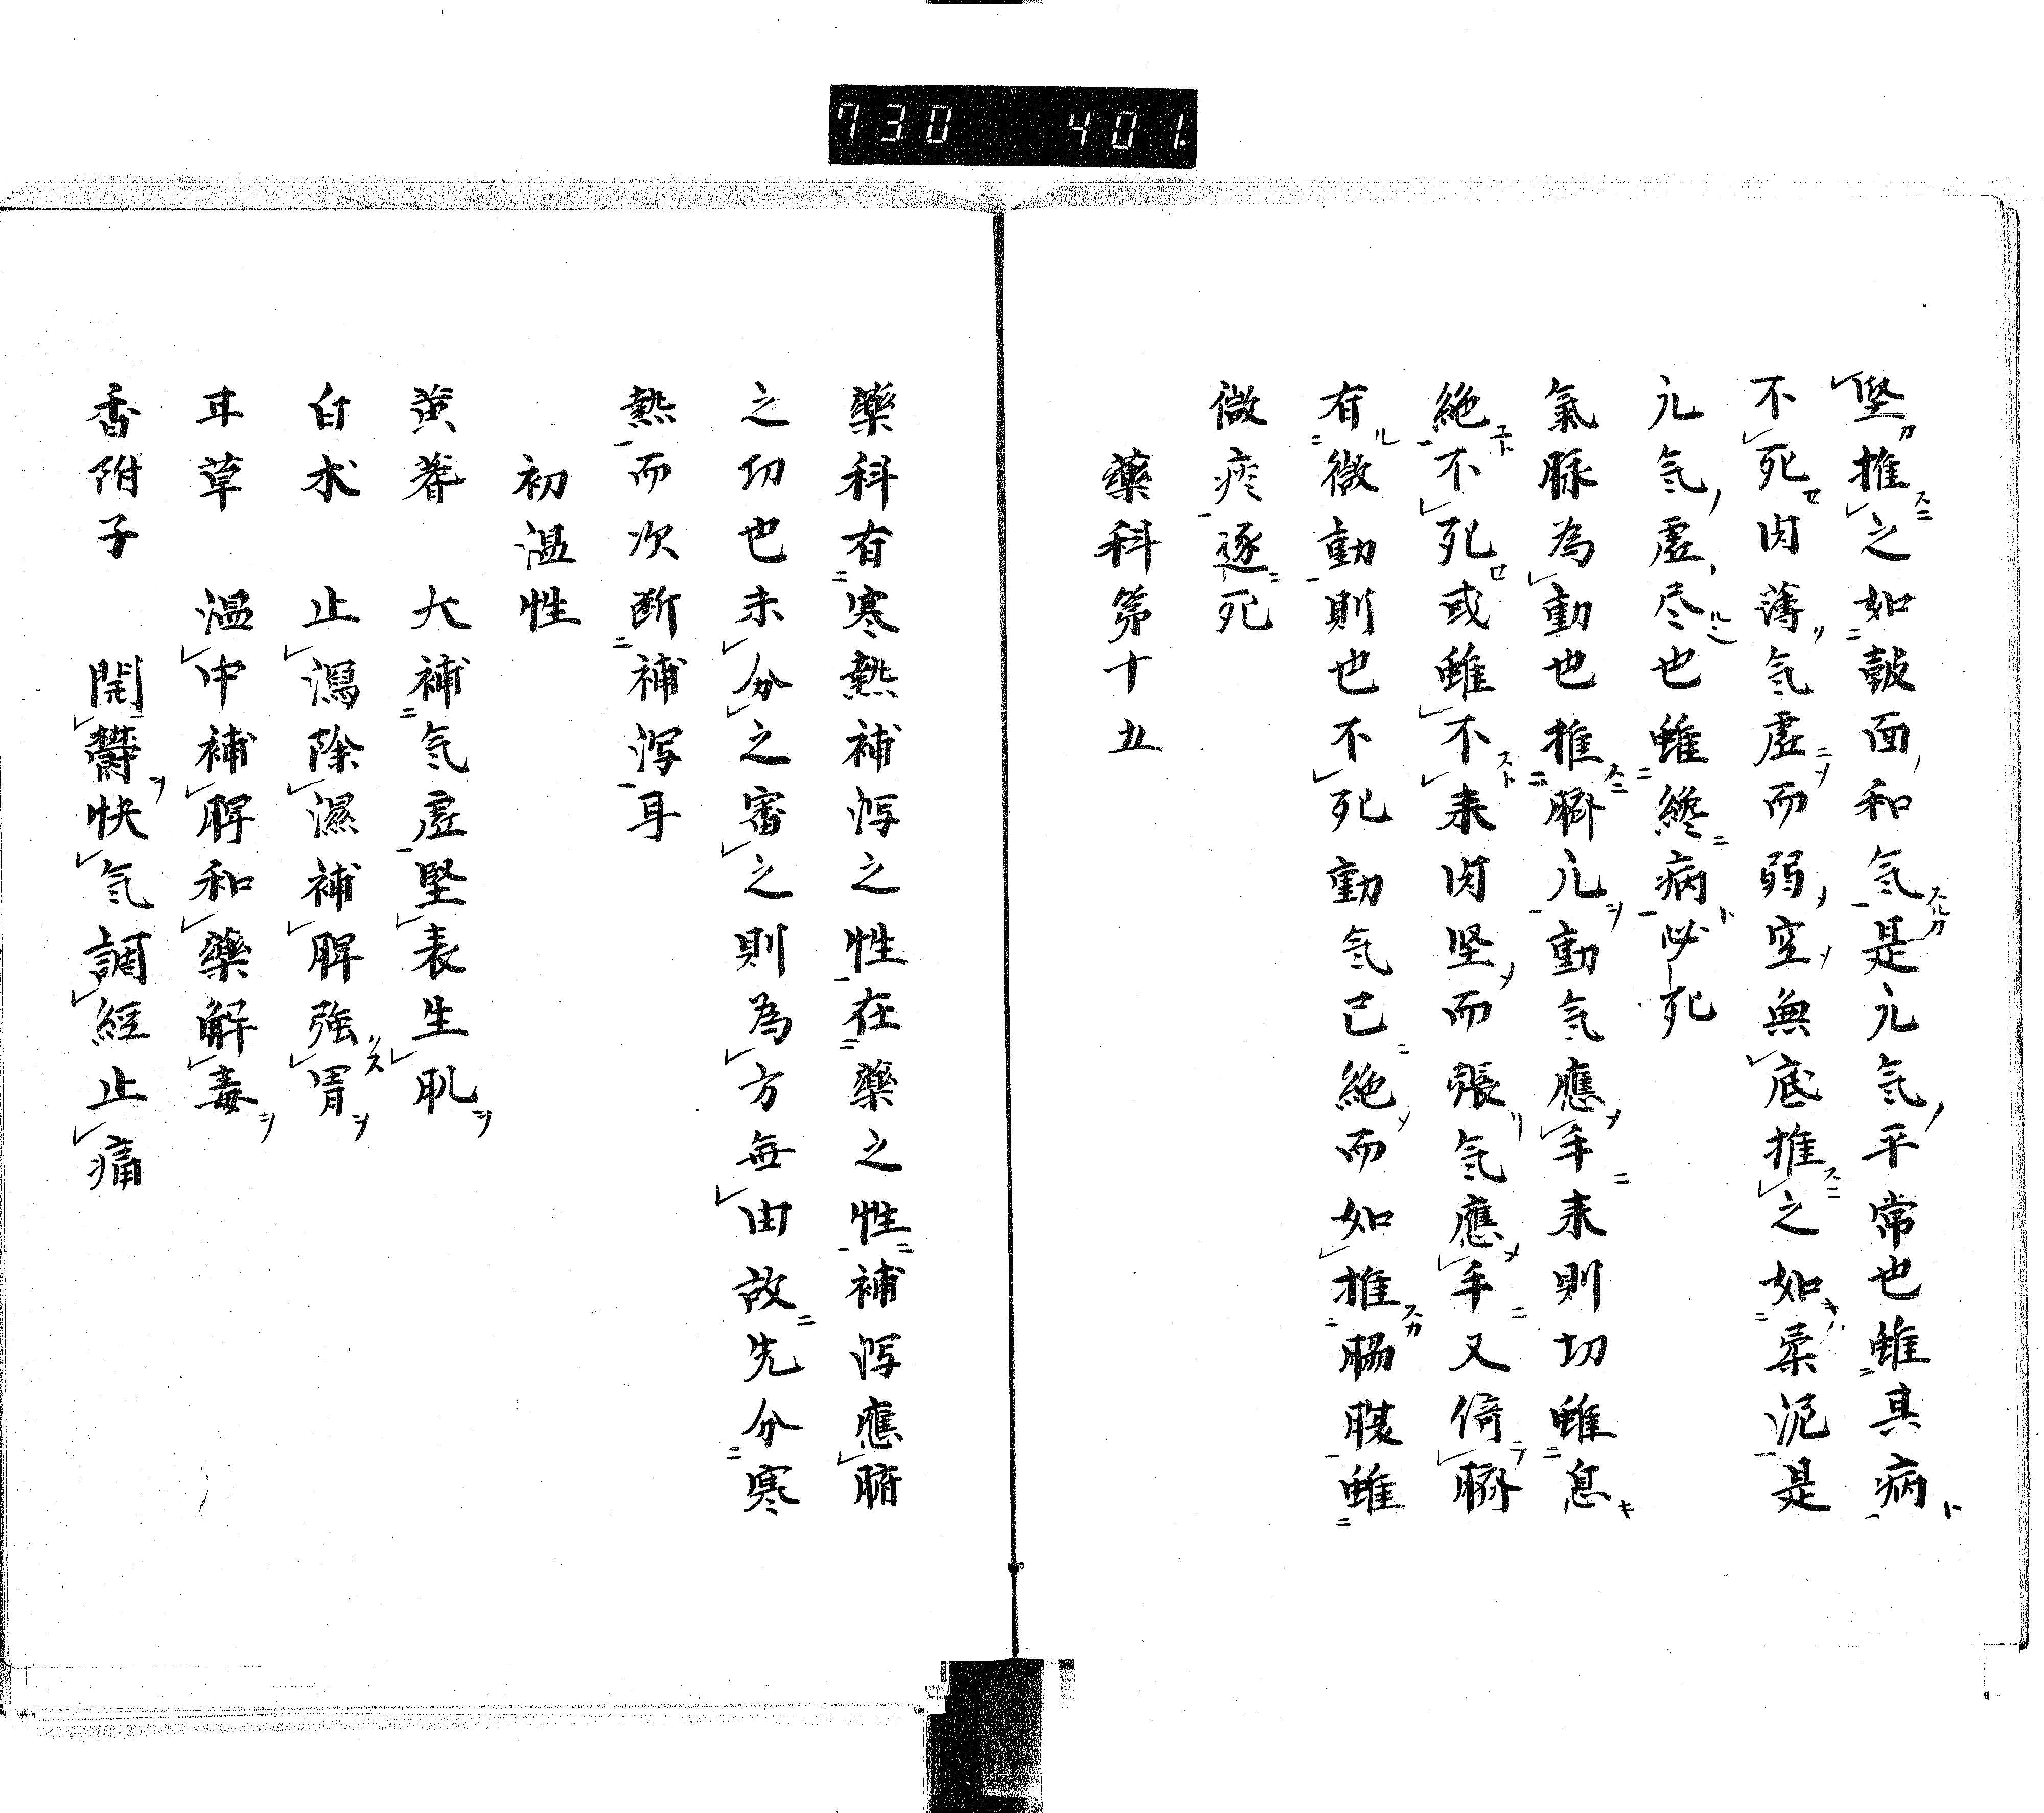 730 401.
堅推之如皷面和気是元気平常也雖其病
不死肉薄気虚而弱空無底推之如柔泥是
元気虚尽也雖纔病必死
氣脉為動也推臍元動気應手来則切雖息
絶不死或雖不来肉坚而張気應手又倚臍
有微動則也不死動気已絶而如推腸腹雖
微瘧逐死
藥科第十五
藥科有寒熱補泻之性在藥之性補泻應腑
之切也未分之審之則為方無由故先分寒
熱而次断補泻耳
初温性
黄耆 大補気虚堅表生肌
白朮 止瀉除濕補脾強胃
甘草 温中補脾和藥解毒
香附子 開鬱快気調經止痛